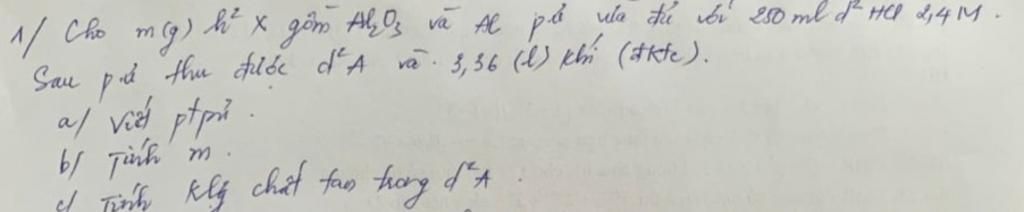 1/ Cho m(g) h² X gồm Al₂O₃ và Al pứ vừa đủ với 250 ml d² HCl 2,4M.
Sau pứ thu được d² A và 3,36 (l) khí (đktc).
a/ Viết ptpứ.
b/ Tính m.
c/ Tính klg chất tan trong d² A.